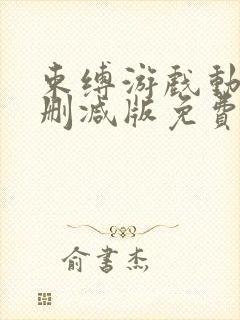 束缚游戏动
删减版免费
俞書杰